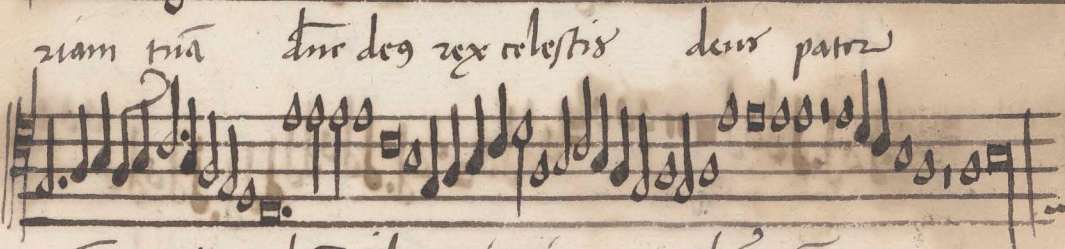 riam tuā dn̄e deꝰ rex celestis deus pater